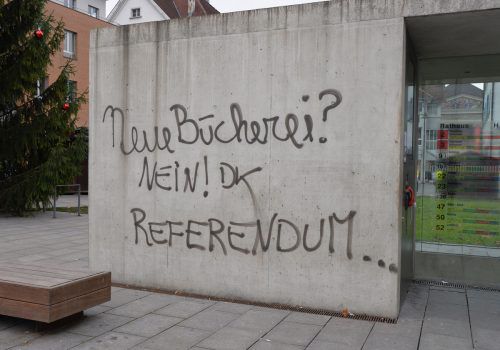 Neue Bücherei?
NEIN! DK
REFERENDUM...
Rathaus
H
9
47
50
52